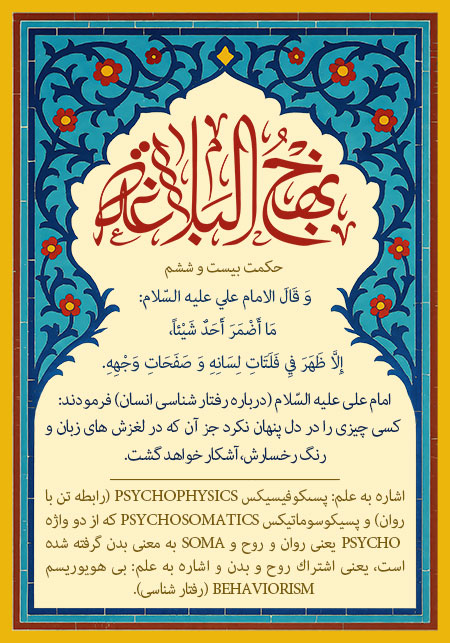 نهج البلاغة
حکمت بیست و ششم
وَ قَالَ الامام علي علیه السّلام:
مَا أَضْمَرَ أَحَدٌ شَيْئاً،
إِلَّا ظَهَرَ فِي فَلَتَاتِ لِسَانِهِ وَ صَفَحَاتِ وَجْهِهِ.
امام علی علیه السّلام (درباره رفتار شناسی انسان) فرمودند:
کسی چیزی را در دل پنهان نکرد جز آن که در لغزش های زبان و
رنگ رخسارش، آشکار خواهد گشت.
اشاره به علم: پسکوفیسیکس PSYCHOPHYSICS (رابطه تن با
روان) و پسیکوسوماتیکس PSYCHOSOMATICS که از دو واژه
PSYCHO یعنی روان و روح و SOMA به معنی بدن گرفته شده
است، یعنی اشتراك روح و بدن و اشاره به علم: بی هویوریسم
BEHAVIORISM (رفتار شناسی).